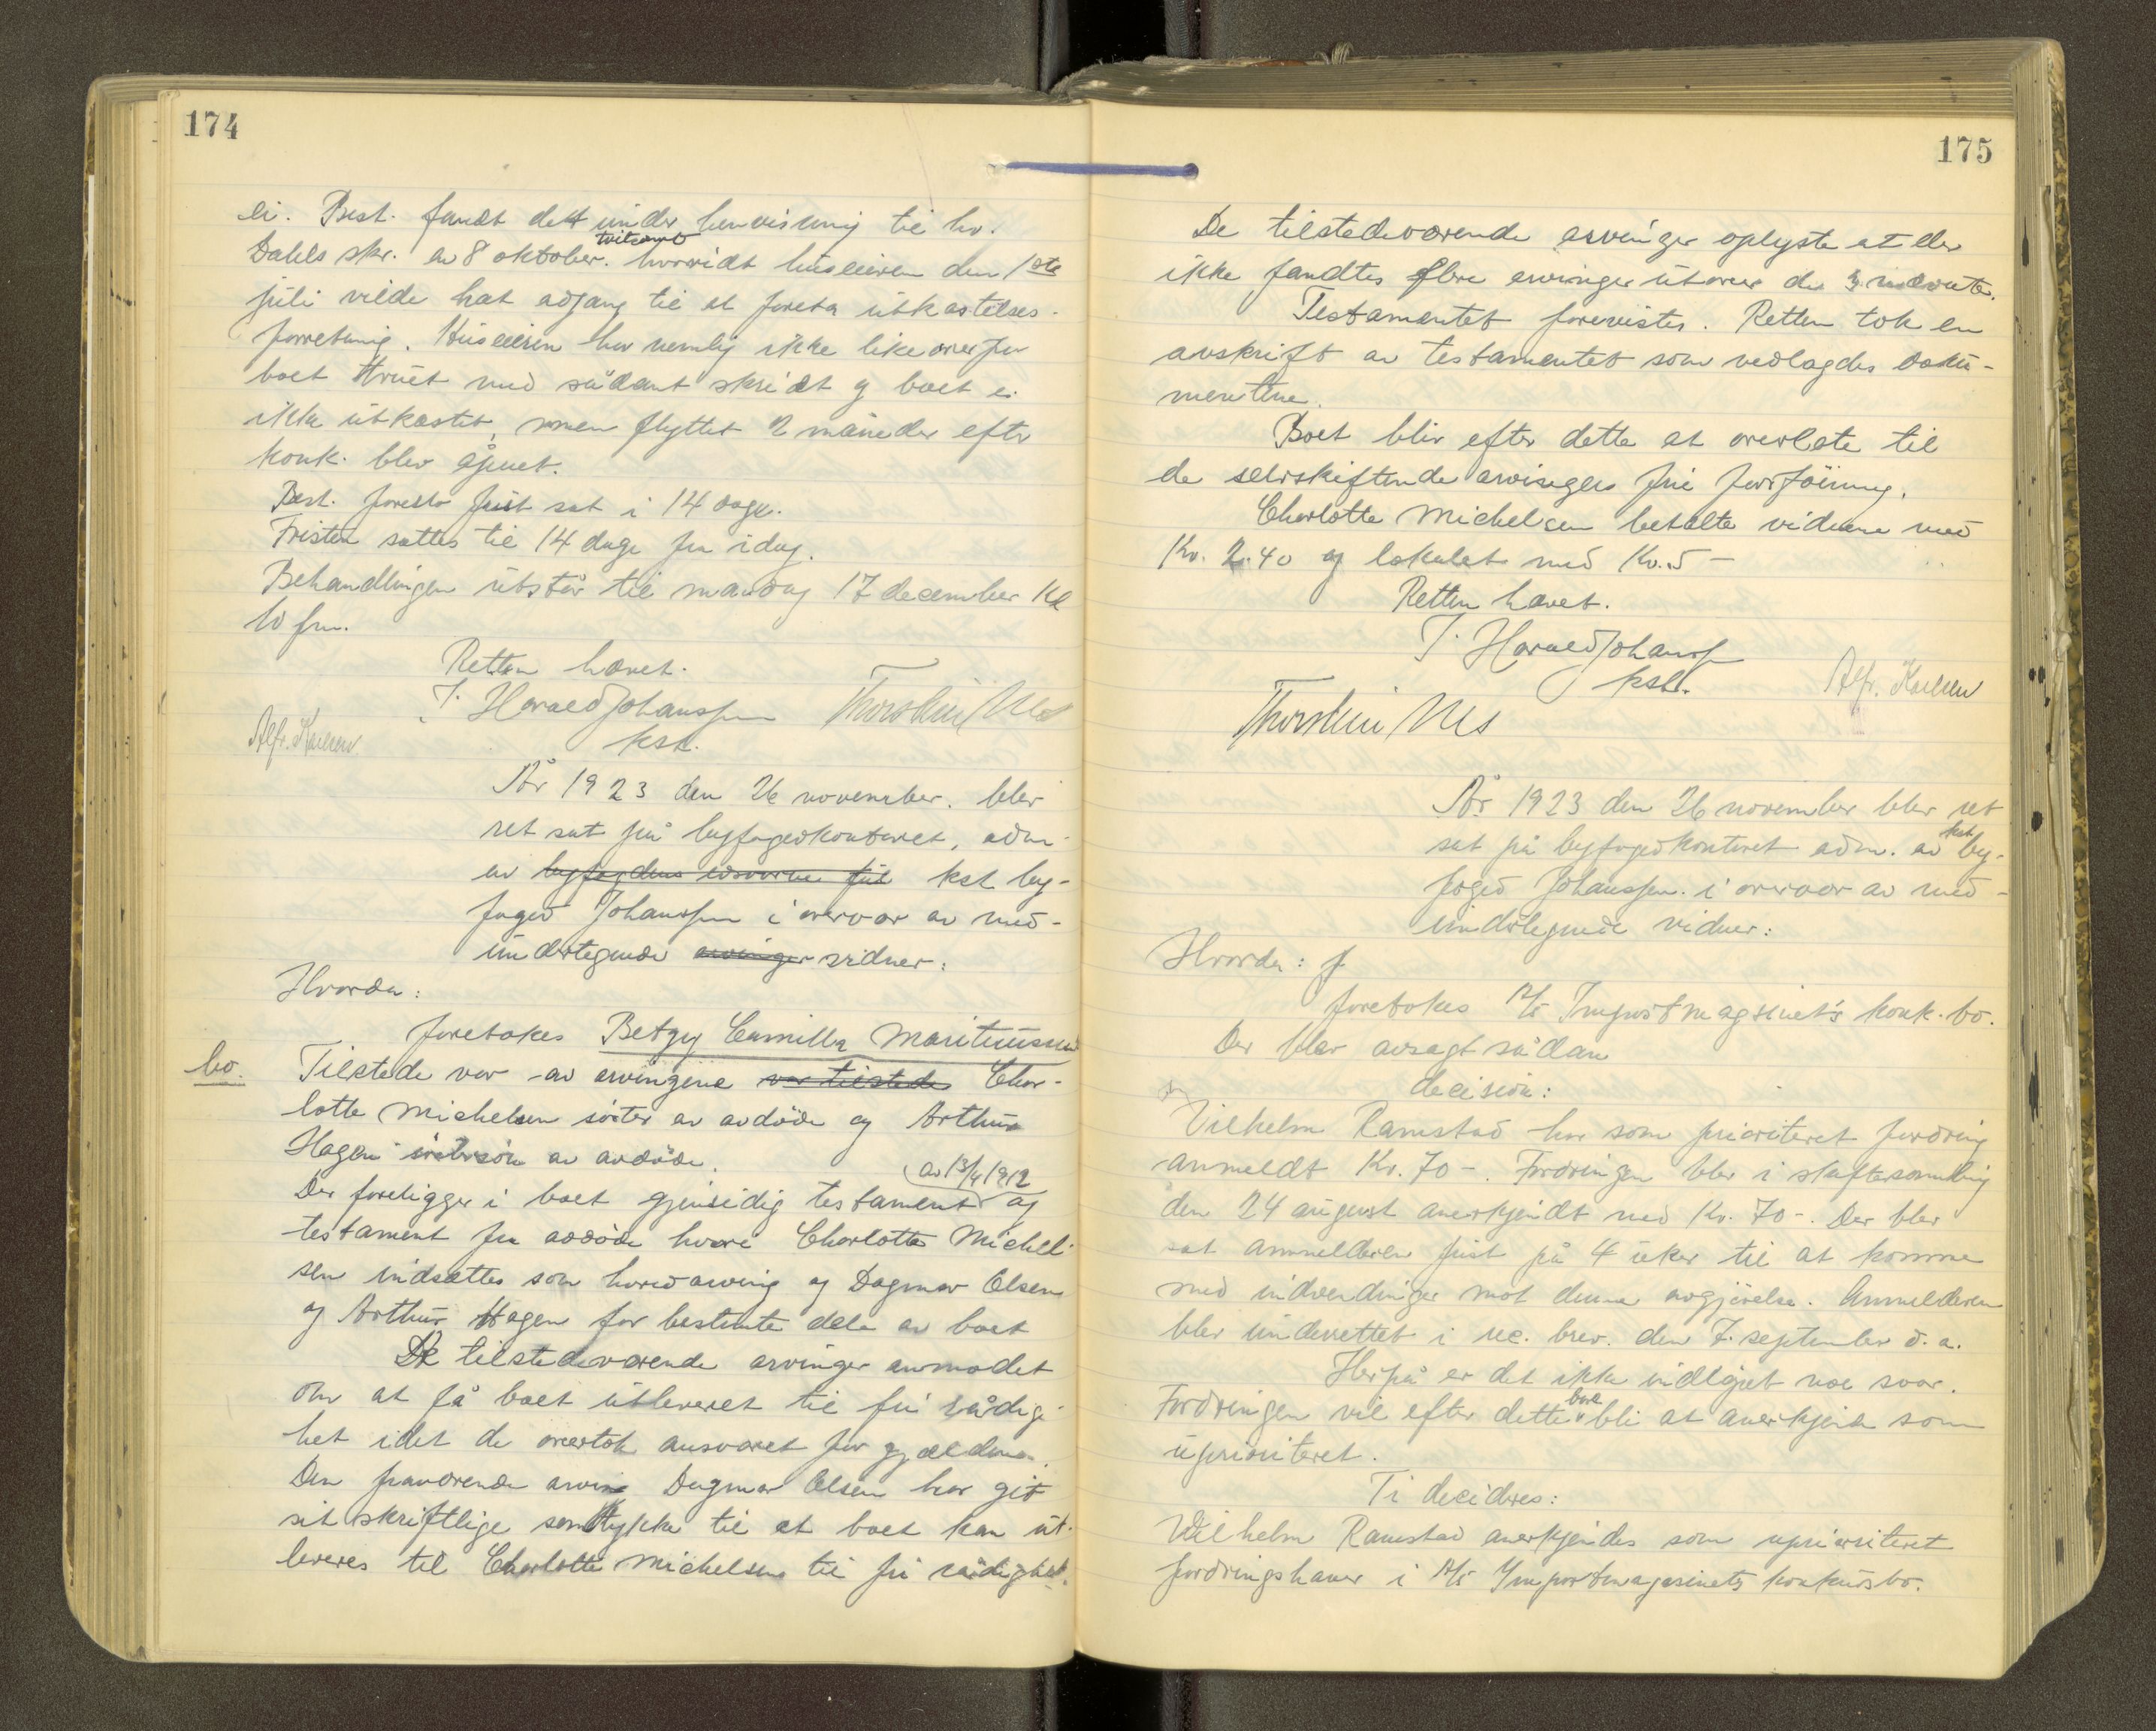 174
li. Best. fandt det under henvisning til hr.
Dahls skr. av 8 oktober tvilsomt hvorvidt huseieren den 1ste
juli vilde hat adgang til at foreta utkastelses-
forretning. Huseieren har nemlig ikke likeoverfor
boet truet med sådant skridt og boet er
ikke utkastet, men flyttet 2 måneder efter
konk. blev åpnet.
Best. foreslo frist sat i 14 dage.
Fristen sattes til 14 dage fra idag.
Behandlingen utstår til mandag 17 december kl
10 fm.
Retten hævet.
T. Harald Johanssen
kst.
Thorstein Nes
Alfr. Karlsen
År 1923 den 26 november. blev
ret sat på byfogedkontoret, adm.
av byfogdens edsvorne fuld kst by-
foged Johanssen i overvær av med-
undertegnede arvinger vidner:
Hvorda:
foretokes Betzy Camilla Marituussen
bo.
Tilstede var av arvingene var tilstede Char-
lotte Michelsen søster av avdøde og Arthur
Hagen søstersøn av avdøde.
Der foreligger i boet gjensidig testament av 13/4 1912 og
testament fra avdøde hvori Charlotte Michel-
sen indsættes som hovedarving og Dagmar Olsen
og Arthur Hagen for bestemte dele av boet
De tilstedeværende arvinger anmodet
om at få boet utleveret til fri rådig-
het idet de overtok ansvaret for gjælden.
Den fraværende arving Dagmar Olsen har git
sit skriftlige samtykke til at boet kan ut-
leveres til Charlotte Michelsen til fri rådighet.
175
De tilstedeværende arvinger oplyste at der
ikke fandtes flere arvinger utover de 3 nævnte.
Testamentet forevistes. Retten tok en
avskrift av testamentet som vedlagdes doku-
mentene.
Boet blir efter dette at overlate til
de selvskiftende arvingers frie forføining.
Charlotte Michelsen betalte vidnene med
Kr. 2.40 og lokalet med Kr. 5 -
Retten hævet.
T. Harald Johanssen
kst.
Alfr. Karlsen
Thorstein Nes
År 1923 den 26 november blev ret
sat på byfogedkontoret adm. av kst by-
foged Johanssen i overvær av med-
undertegnede vidner:
Hvorda: f
foretokes A/S Importmagasinet's konk. bo.
Der blev avsagt sådan
decision:
Vilhelm Ramstad har som prioriteret fordring
anmeldt Kr. 70-. Fordringen blev i skiftesamling
den 24 august anerkjendt med Kr. 70-. Der blev
sat anmelderen frist på 4 uker til at komme
med indvendinger mot denne avgjørelse. Anmelderen
blev underrettet i rec. brev. den 7. september d.a.
Herpå er det ikke indløpet noe svar.
Fordringen vil efter dette bare bli at anerkjende som
uprioritert.
Ti decideres:
Wilhelm Ramstad anerkjendes som uprioriteret
fordringshaver i A/S Importmagasinets konkursbo.